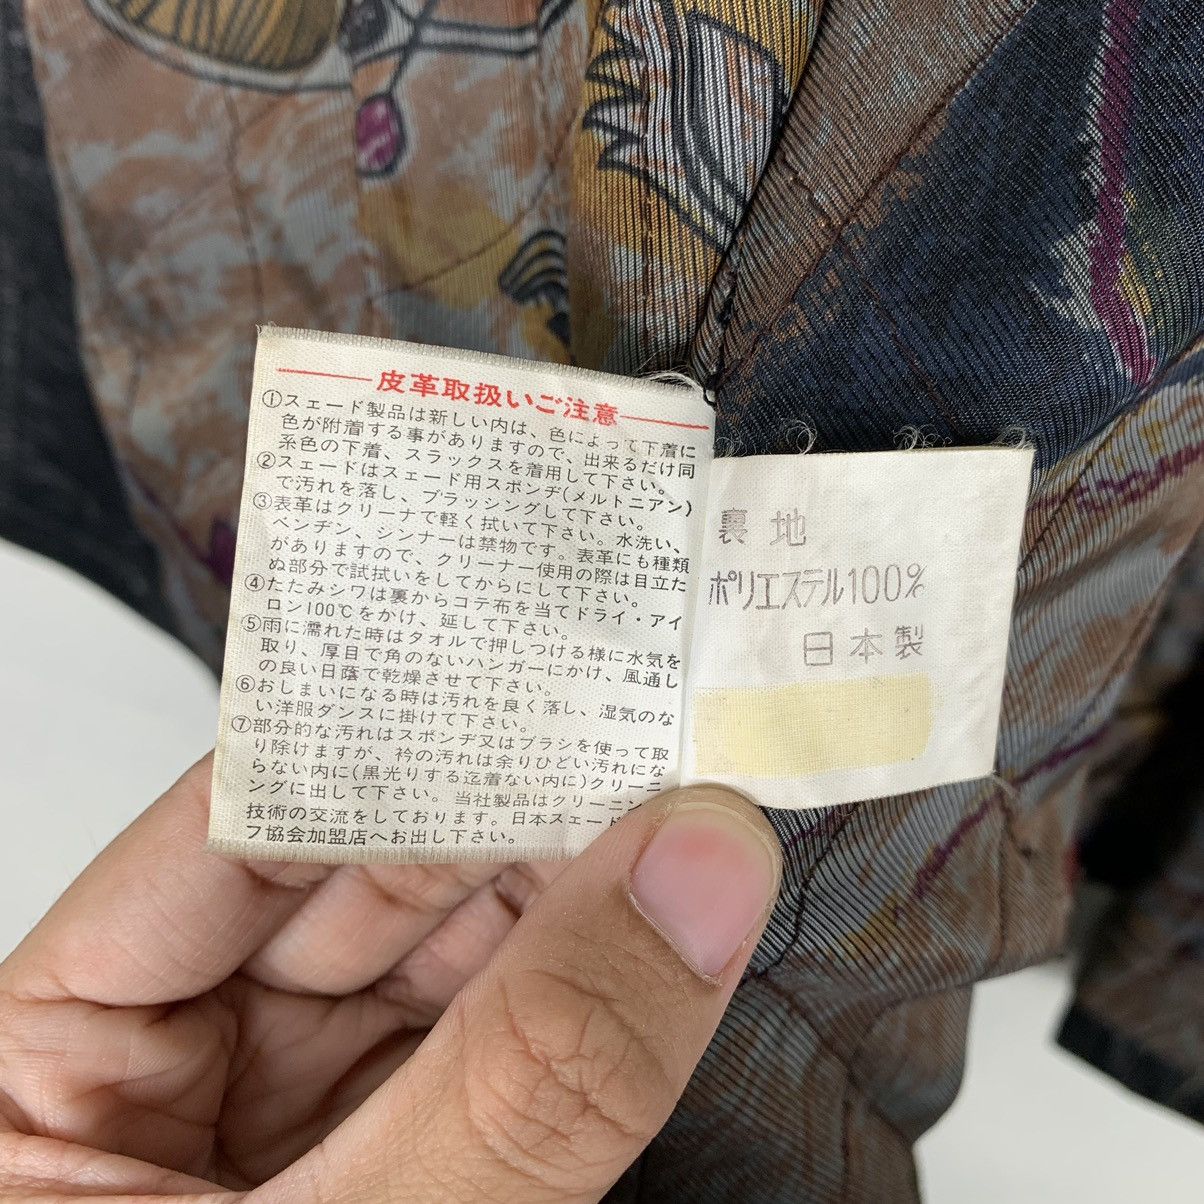 皮革取扱いご注意
①スェード製品は新しい内は、色によって下着に
色が附着する事がありますので、出来るだけ同
系色の下着、スラックスを着用して下さい。
②スェードはスェード用スポンヂ(メルトニアン)
で汚れを落し、ブラッシングして下さい。
③表革はクリーナで軽く拭いて下さい。水洗い、
ベンヂン、シンナーは禁物です。表革にも種類
がありますので、クリーナー使用の際は目立た
ぬ部分で試拭いをしてからにして下さい。
④たたみシワは裏からコテ布を当てドライ・アイ
ロン100℃をかけ、延して下さい。
⑤雨に濡れた時はタオルで押しつける様に水気を
取り、厚目で角のないハンガーにかけ、風通し
の良い日蔭で乾燥させて下さい。
⑥おしまいになる時は汚れを良く落し、湿気のな
い洋服ダンスに掛けて下さい。
⑦部分的な汚れはスポンヂ又はブラシを使って取
り除けますが、衿の汚れは余りひどい汚れにな
らない内に(黒光りする迄着ない内に)クリーニ
ングに出して下さい。当社製品はクリーニン
技術の交流をしております。日本スェード
フ協会加盟店へお出し下さい。
裏地
ポリエステル100%
日本製